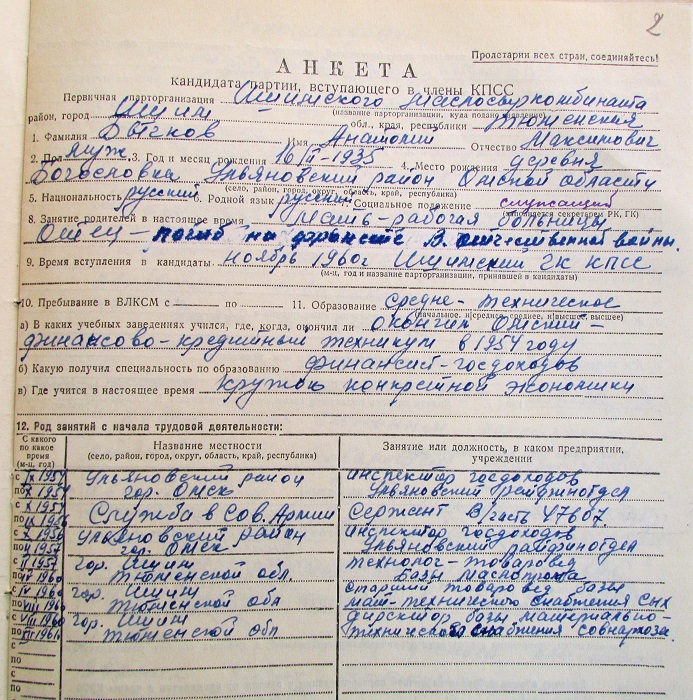 2
Пролетарии всех стран, соединяйтесь!
АНКЕТА
кандидата партии, вступающего в члены КПСС
Первичная парторганизация Ишимского маслосыркомбината
(название парторганизации, куда подано заявление)
район, город Ишим обл., края, республики Тюменская
1. Фамилия Бычков Имя Анатолий Отчество Максимович
2. Пол муж. 3. Год и месяц рождения 16/II-1935 4. Место рождения деревня
Богословка Ульяновский район Омской области
(село, район, город, округ, область, край, республика)
5. Национальность русский 6. Родной язык русский Социальное положение служащий
(заполняется секретарем РК, ГК)
8. Занятие родителей в настоящее время Мать-рабочая больницы
Отец-погиб на фронте В. отечественной войны.
9. Время вступления в кандидаты ноябрь 1960г Ишимский ГК КПСС
(м-ц, год и название парторганизации, принявшей в кандидаты)
10. Пребывание в ВЛКСМ с по 11. Образование Средне-техническое
(начальное, н/среднее, среднее, н/высшее, высшее)
а) В каких учебных заведениях учился, где, когда, окончил ли окончил Омский-
финансово-кредитный техникум в 1954 году
б) Какую получил специальность по образованию финансист-госдоходов
в) Где учится в настоящее время кружок конкретной экономики
12. Род занятий с начала трудовой деятельности:
С какого по какое время (м-ц, год)
Название местности
(село, район, город, округ, область, край, республика)
Занятие или должность, в каком предприятии, учреждении
с 1954 Ульяновский район инспектор госдоходов
по 1954 гор. Омск Ульяновский райфинотдел
с 1954 Служба в Сов. Армии Сержант В/часть 47607
по 1956
с 1956 Ульяновский район инспектор госдоходов
по 1957 гор. Омск Ульяновский райфинотдел
с 1957 гор. Ишим технолог-товаровед
по 1960 Тюменской обл. базы маслопрома
с 1960 гор. Ишим старший товаровед базы
по 1960 Тюменской обл мат-технического снабжения СНХ
с VIII 1960 гор. Ишим директор базы материально-
по 1961 Тюменской обл технического снабжения совнархоза.
с
по
с
по